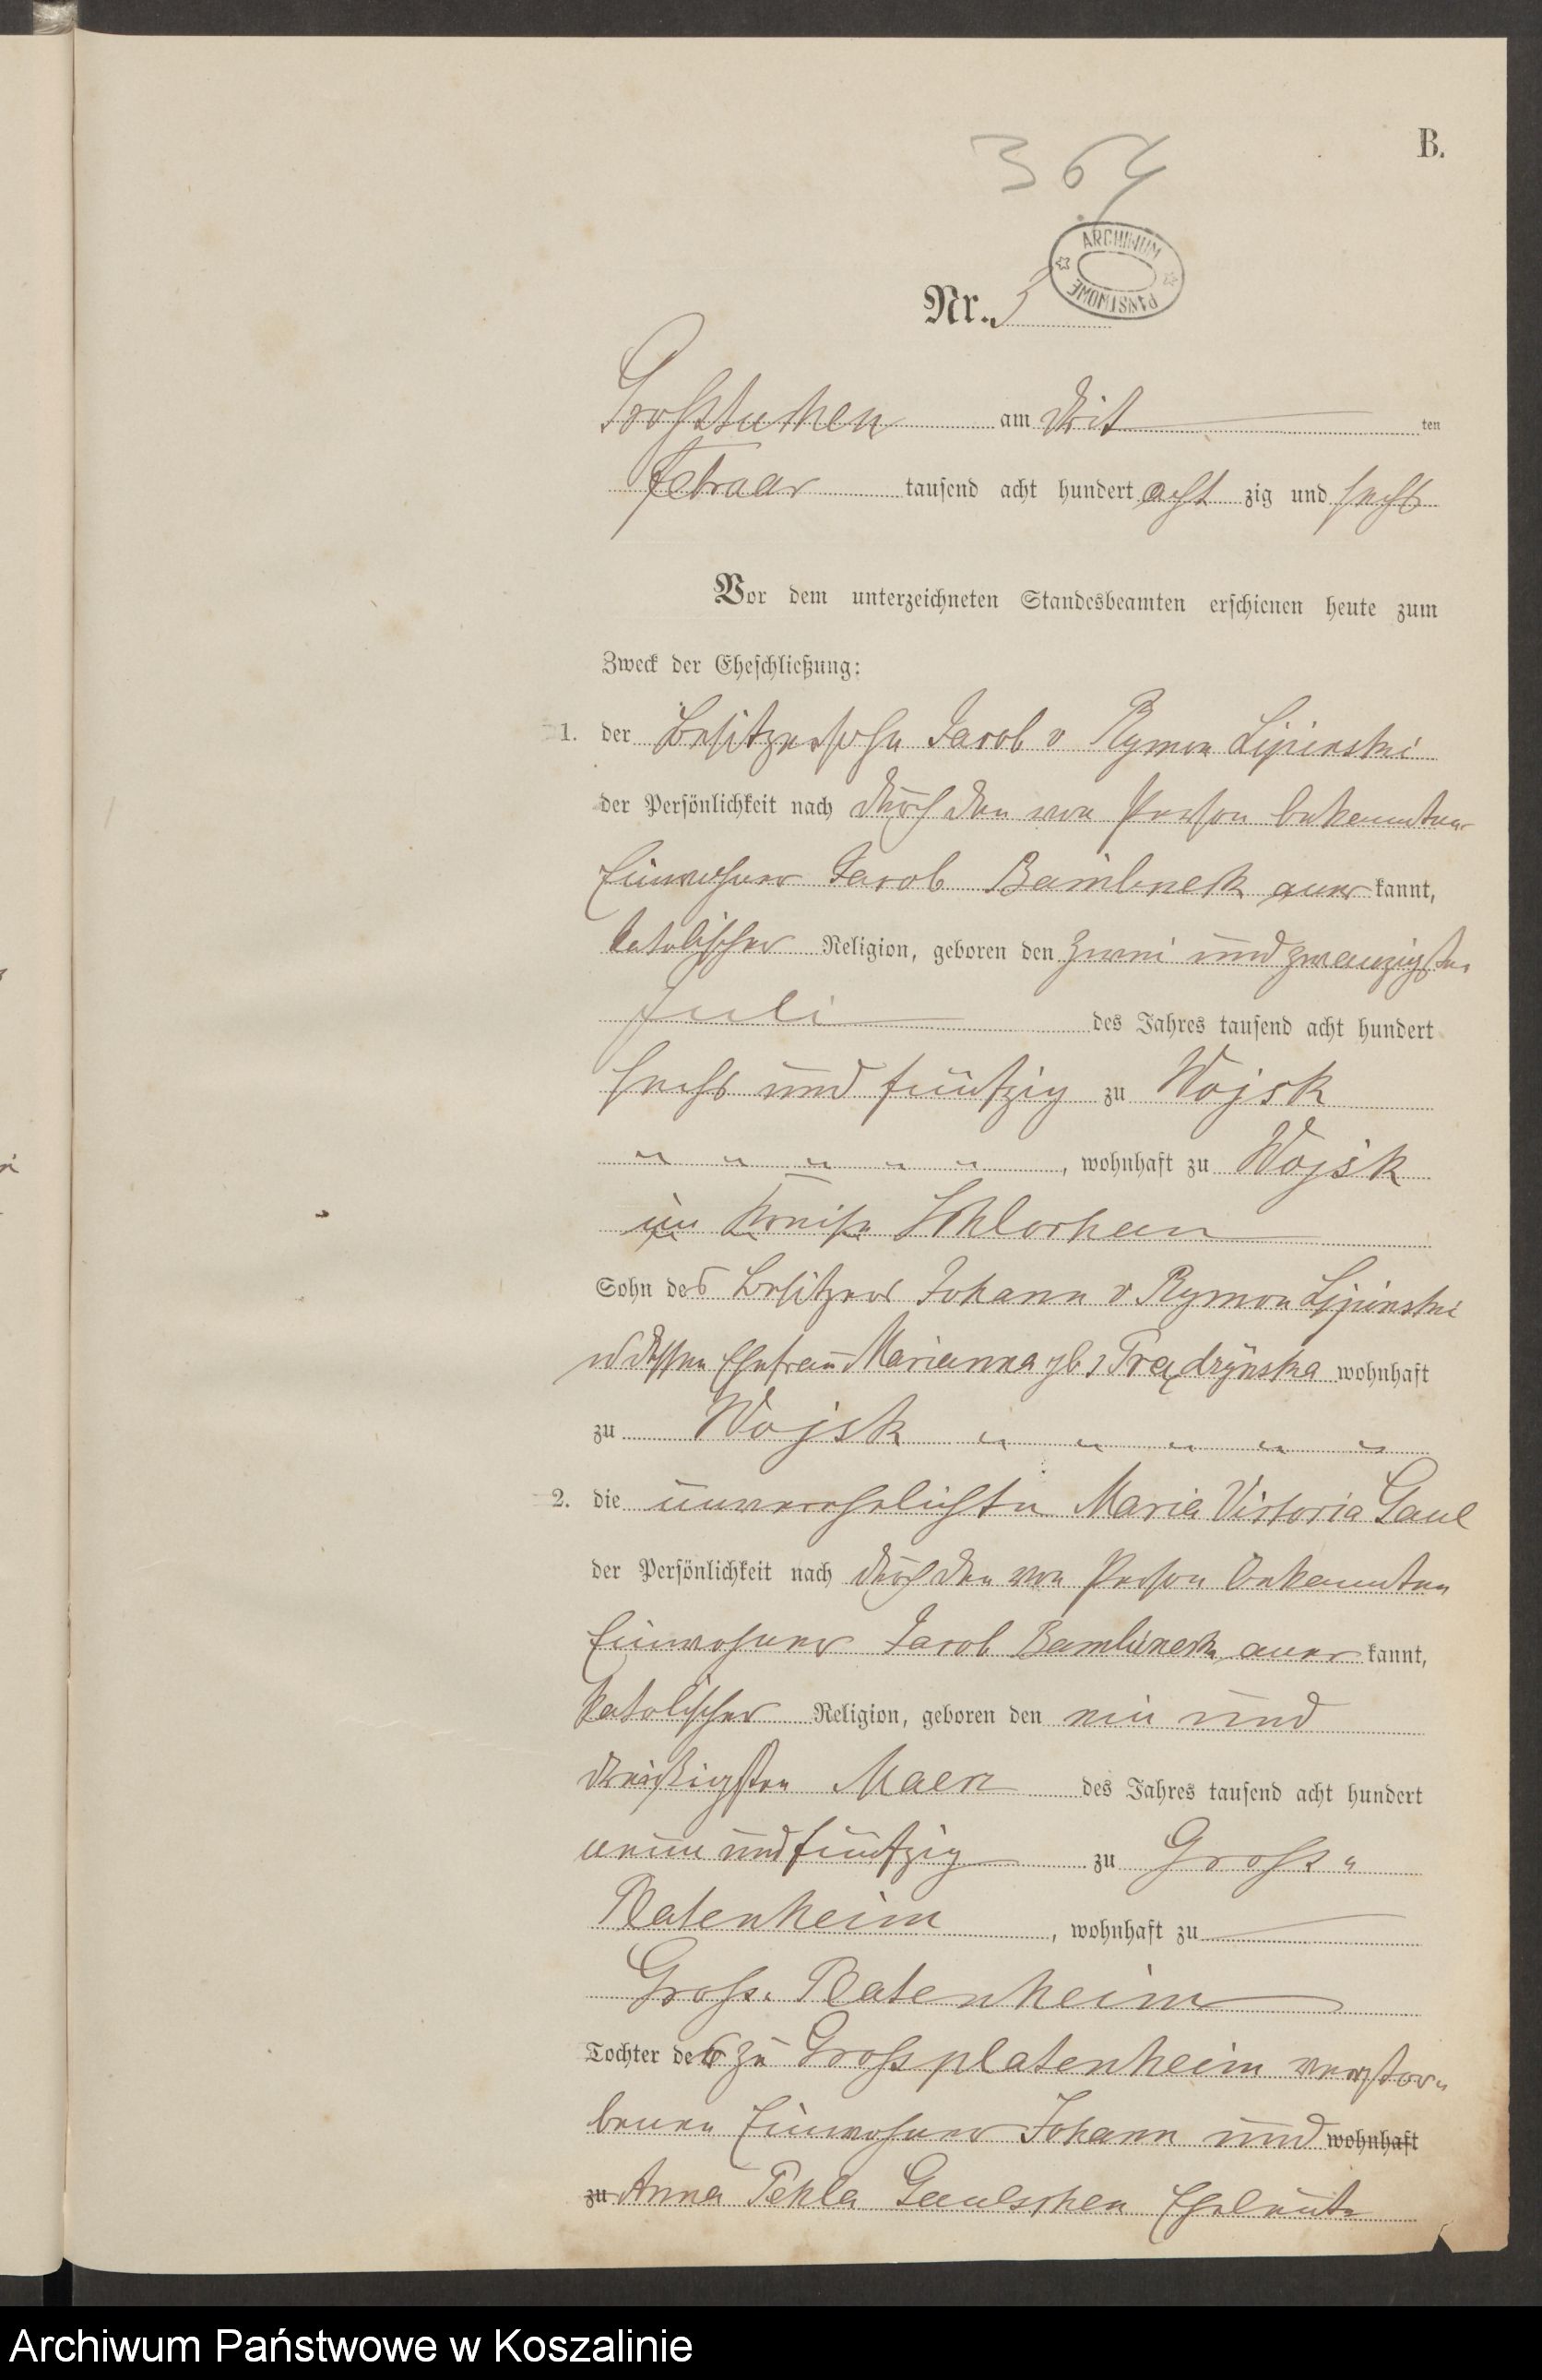 B.
364
ARCHIWUM
PAŃSTWOWE
Nr. 5
Großtuchen am drit ten
Februar tausend acht hundert acht zig und sechs
Vor dem unterzeichneten Standesbeamten erschienen heute zum
Zweck der Eheschließung:
1. der Besitzersohn Jacob v Rymon Lipinski
der Persönlichkeit nach durch den von Person bekannten
Einwohner Jacob aner kannt,
katolischer Religion, geboren den zwei und zwanzigsten
Juli des Jahres tausend acht hundert
sechs und fünfzig zu Wojsk
, wohnhaft zu Wojsk
im Kreise Schlochau
Sohn des Besitzers Johann v Rymon Lipinski
u dessen Ehefrau Marianna gb Prądzyńska wohnhaft
zu Wojsk
2. die unverehelichte Maria Victoria Gaul
der Persönlichkeit nach durch den von Person bekannten
Einwohner Jacob aner kannt,
katolischer Religion, geboren den ein und
dreißigsten Maerz des Jahres tausend acht hundert
neun und fünfzig zu Gross
Platenheim, wohnhaft zu
Gross. Platenheim
Tochter der zu Grossplatenheim verstor-
benen Einwohner Johann und wohnhaft
zu Anna Tekla Gaulschen Eheleute
Archiwum Państwowe w Koszalinie